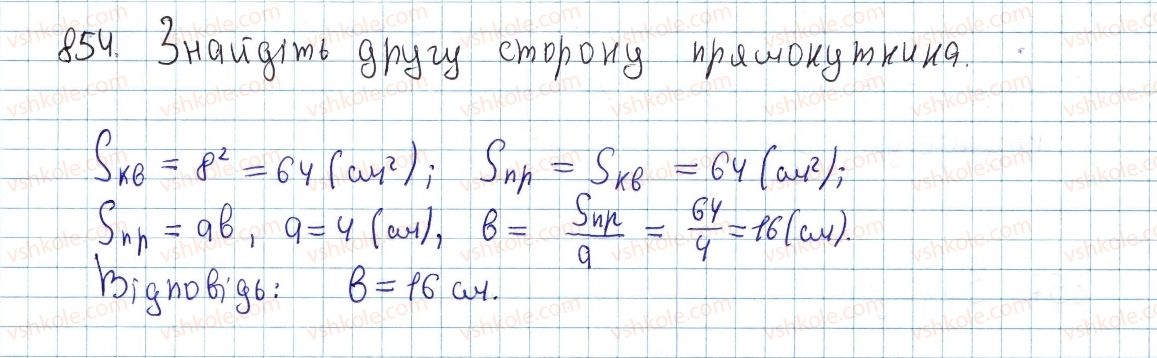 854. Знайдіть другу сторону прямокутника.
Sкв = 8² = 64 (см²); Sпр = Sкв = 64 (см²);
Sпр = ав, а = 4 (см), в = Sпр/а = 64/4 = 16 (см).
Відповідь: в = 16 см.